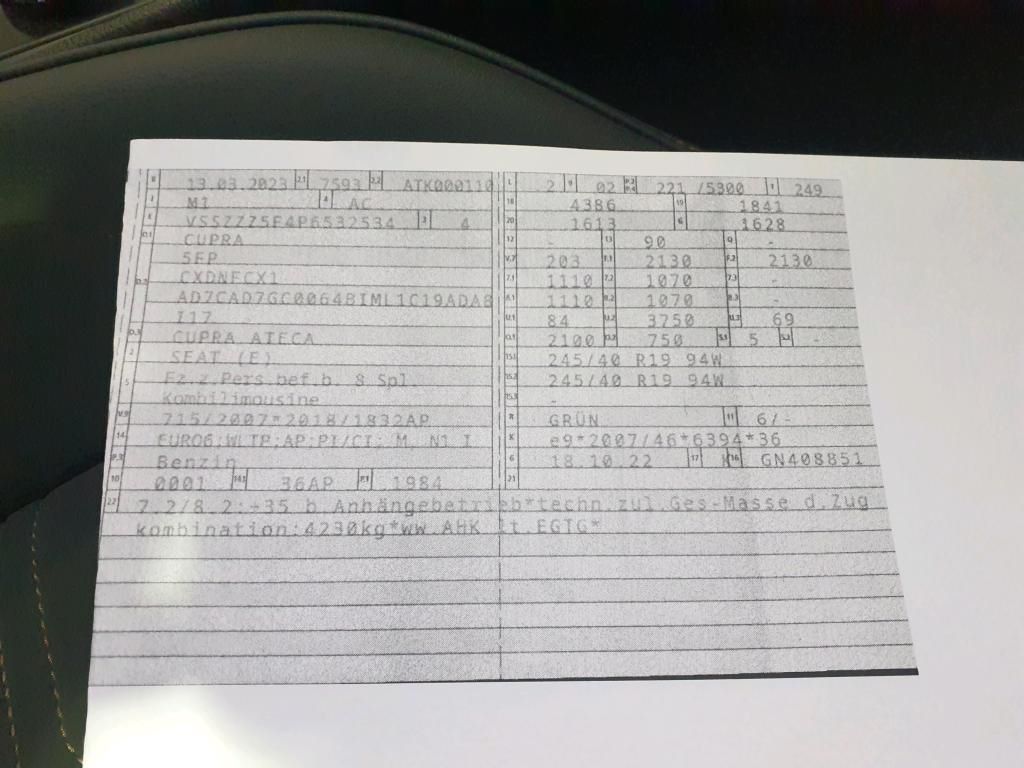 B 13.03.2023 2.1 7593 2.2 ATK000110
J M1 4 AC
E VSSZZZ5F4P6532534 3 4
D.1 CUPRA
5FP
D.2 CXDNFCX1
AD7CAD7GC0064BIML1C19ADAB
I17
D.3 CUPRA ATECA
2 SEAT (E)
5 Fz.z.Pers.bef.b. 8 Spl.
Kombilimousine
V.9 715/2007*2018/1832AP
14 EURO6;WLTP;AP;PI/CI; M, N1 I
P.3 Benzin
10 0001 14.1 36AP P.1 1984
L 2 9 02 P.2 P.4 221 /5300 T 249
18 4386 19 1841
20 1613 G 1628
12 - 13 90 Q -
V.7 203 F.1 2130 F.2 2130
7.1 1110 7.2 1070 7.3 -
8.1 1110 8.2 1070 8.3 -
U.1 84 U.2 3750 U.3 69
O.1 2100 O.2 750 S.1 5 S.2 -
15.1 245/40 R19 94W
15.2 245/40 R19 94W
15.3 -
R GRÜN 11 6/-
K e9*2007/46*6394*36
6 18.10.22 17 K 16 GN408851
21
22 7.2/8.2:+35 b.Anhängebetrieb*techn.zul.Ges-Masse d.Zug
kombination:4230kg*ww.AHK lt.EGTG*